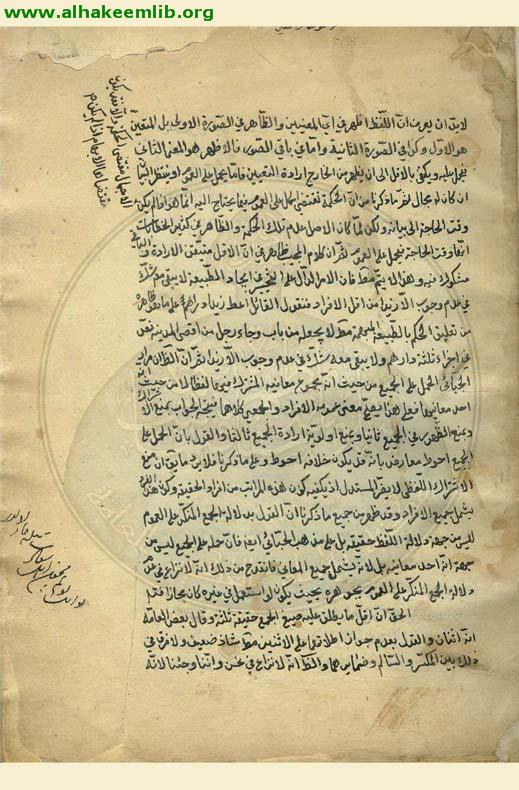 www.alhakeemlib.org
لابد ان يعرف انّ اللّفظ اظهر في ايّ المعنيين والظاهر في الصّورة الاولى بل المتعين
هو الاوّل وكذا في الصّورة الثانية وامّا في باقي الصّور فالاظهر هو المعنى الثاني
فيحمل عليه ويكتفى بالاقل الى ان يظهر من الخارج ارادة المتعيين فامّا يحمل على العموم او ينتظر البيا
ان كان له مجال لما ذكرنا من انّ الحكمة تقتضي الحمل على العموم فيما يحتاج اليه امّا هو اذا لم يكن
وقت الحاجة الى بيانه ولكن لمّا كان الاصل عدم تلك الحكمة والظاهر في كثير الخطابات
انّها وقت الحاجة فيحمل على العموم ثمّ انّ كلام المجيب ظاهر في انّ الاقل متيقّن الارادة و
مشكوك فيه وهذا لا يتم مط فان الامر الدّال على التخيير في ايجاد الطّبيعة لا يبقى معه شكّ
في عدم وجوب الازيد من اقل الافراد فنقول القائل اعط زيدا دراهم على ما هو ظاهره
من تعليق الحكم بالطّبيعة المبهمة مط لا يجعله من باب وجاء رجل من اقصى المدينة
في اجزاء ثلثة دراهم ولا يبقى معه شكّ في عدم وجوب الازيد ثمّ انّ الظّ ان مراد
الجبائي الحمل على الجميع من حيث انّه مجموع معانيه المشترك فيها لفظا لا من حيث انّه
احد معانيه فعلى هذا يصحّ معنى عمومه الافرادي والجمعي كلاهما فيتّجه الجواب بمنع الا
وبمنع الظّهور في الجميع ثانيا وبمنع اولويّة ارادة الجميع ثالثا والقول بانّ الحمل على
الجميع احوط معارض بانّه قد يكون خلافه احوط وعلى ما ذكرنا فلا يرد ما يقال ان منع
الاشتراك اللّفظي لا يضرّ المستدل اذ يكفيه كون هذه المراتب من افراد الحقيقة وكون هذا
يشمل جميع الافراد وقد ظهر من جميع ما ذكرنا انّ القول بدلالة الجمع المنكّر على العموم
ليس من جهة دلالة اللّفظ حقيقة بل على مذهب الجبائي ايضا فان حمله على الجميع ليس من
جهة انّه احد معانيه بل لانّه يشمل جميع المعاني فانقدح من ذلك انّه لا نزاع في عدم
دلالة الجمع المنكّر على العموم بجوهره بحيث يكون لو استعمل في غيره كان مجازا
الحق ان اقلّ ما يطلق عليه صيغ الجمع حقيقة ثلثة وقال بعض العامّة
انّه اثنان والقول بعدم جواز اطلاقها على الاثنين مط شاذ ضعيف ولا فرق في
ذلك بين المكسّر والسّالم وضمايرهما والظّ انّه لا نزاع في نحن وانّنا وجئنا لانّه